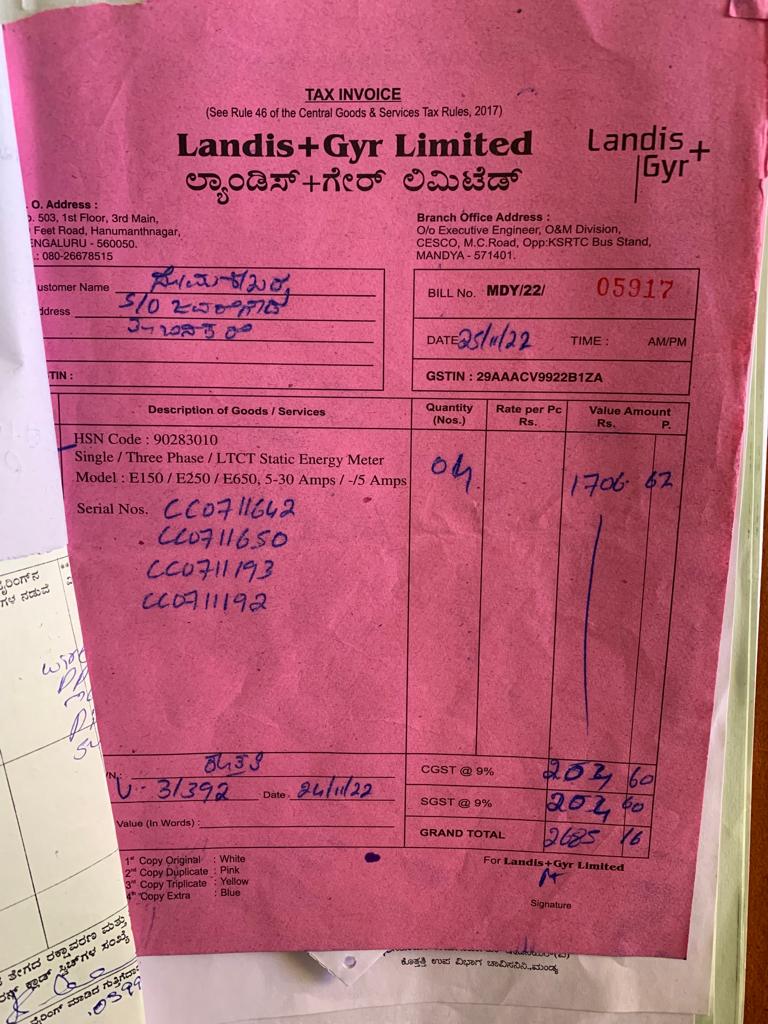 TAX INVOICE
(See Rule 46 of the Central Goods & Services Tax Rules, 2017)
Landis+Gyr Limited
ಲ್ಯಾಂಡಿಸ್+ಗೇರ್ ಲಿಮಿಟೆಡ್
Landis
Gyr+
O. Address :
503, 1st Floor, 3rd Main,
Feet Road, Hanumanthnagar,
ENGALURU - 560050.
.: 080-26678515
Branch Office Address :
O/o Executive Engineer, O&M Division,
CESCO, M.C.Road, Opp:KSRTC Bus Stand,
MANDYA - 571401.
ustomer Name
ddress S/O
TIN :
BILL No. MDY/22/ 05917
DATE 25/11/22 TIME : AM/PM
GSTIN : 29AAACV9922B1ZA
Description of Goods / Services Quantity (Nos.) Rate per Pc Rs. Value Amount Rs. P.
HSN Code : 90283010
Single / Three Phase / LTCT Static Energy Meter
Model : E150 / E250 / E650, 5-30 Amps / -/5 Amps 04 1706 62
Serial Nos. CC0711642
CC0711650
CC0711193
CC0711192
N.:
3/392 Date 24/11/22
Value (In Words) :
CGST @ 9% 204 60
SGST @ 9% 204 60
GRAND TOTAL 2685 16
1st Copy Original : White
2nd Copy Duplicate : Pink
3rd Copy Triplicate : Yellow
4th Copy Extra : Blue
For Landis+Gyr Limited
Signature
ಗಳ ನಡುವೆ
ತೇಗದ ರಕ್ಷಾವರಣ ಮತ್ತು
ಕೊತ್ತತ್ತಿ ಉಪ ವಿಭಾಗ ಚಾವಿಸನಿನಿ.,ಮಂಡ್ಯ